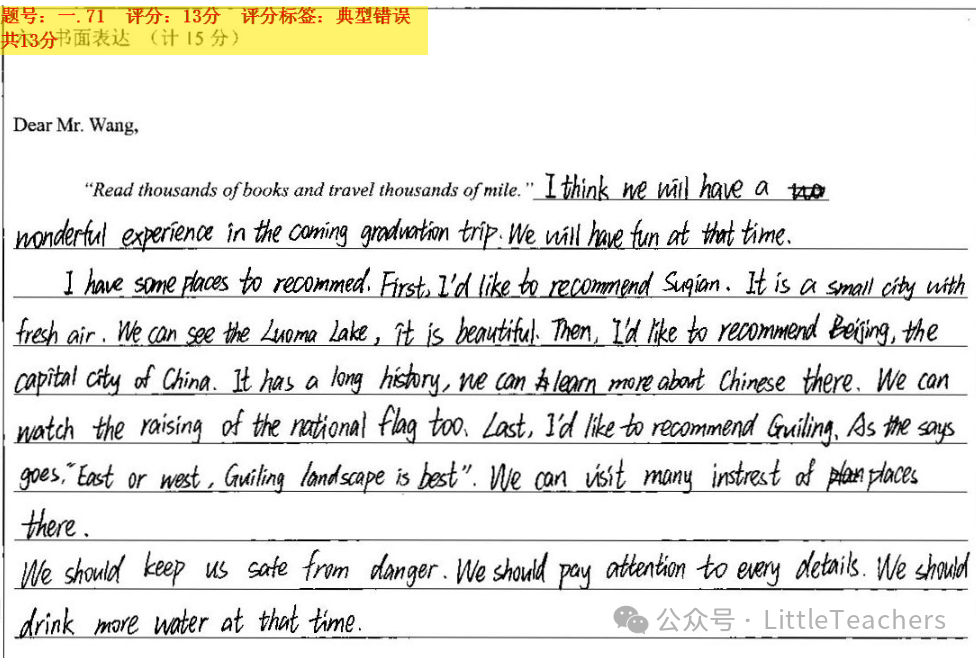 题号：一.71 评分：13分 评分标签：典型错误
共13分 书面表达 （计 15 分）
Dear Mr. Wang,
"Read thousands of books and travel thousands of mile." I think we will have a
wonderful experience in the coming graduation trip. We will have fun at that time.
I have some places to recommed. First, I'd like to recommend Suqian. It is a small city with
fresh air. We can see the Luoma Lake, it is beautiful. Then, I'd like to recommend Beijing, the
capital city of China. It has a long history, we can learn more about Chinese there. We can
watch the raising of the national flag too. Last, I'd like to recommend Guiling. As the says
goes, "East or west, Guiling landscape is best". We can visit many instrest of places
there.
We should keep us safe from danger. We should pay attention to every details. We should
drink more water at that time.
公众号 · LittleTeachers